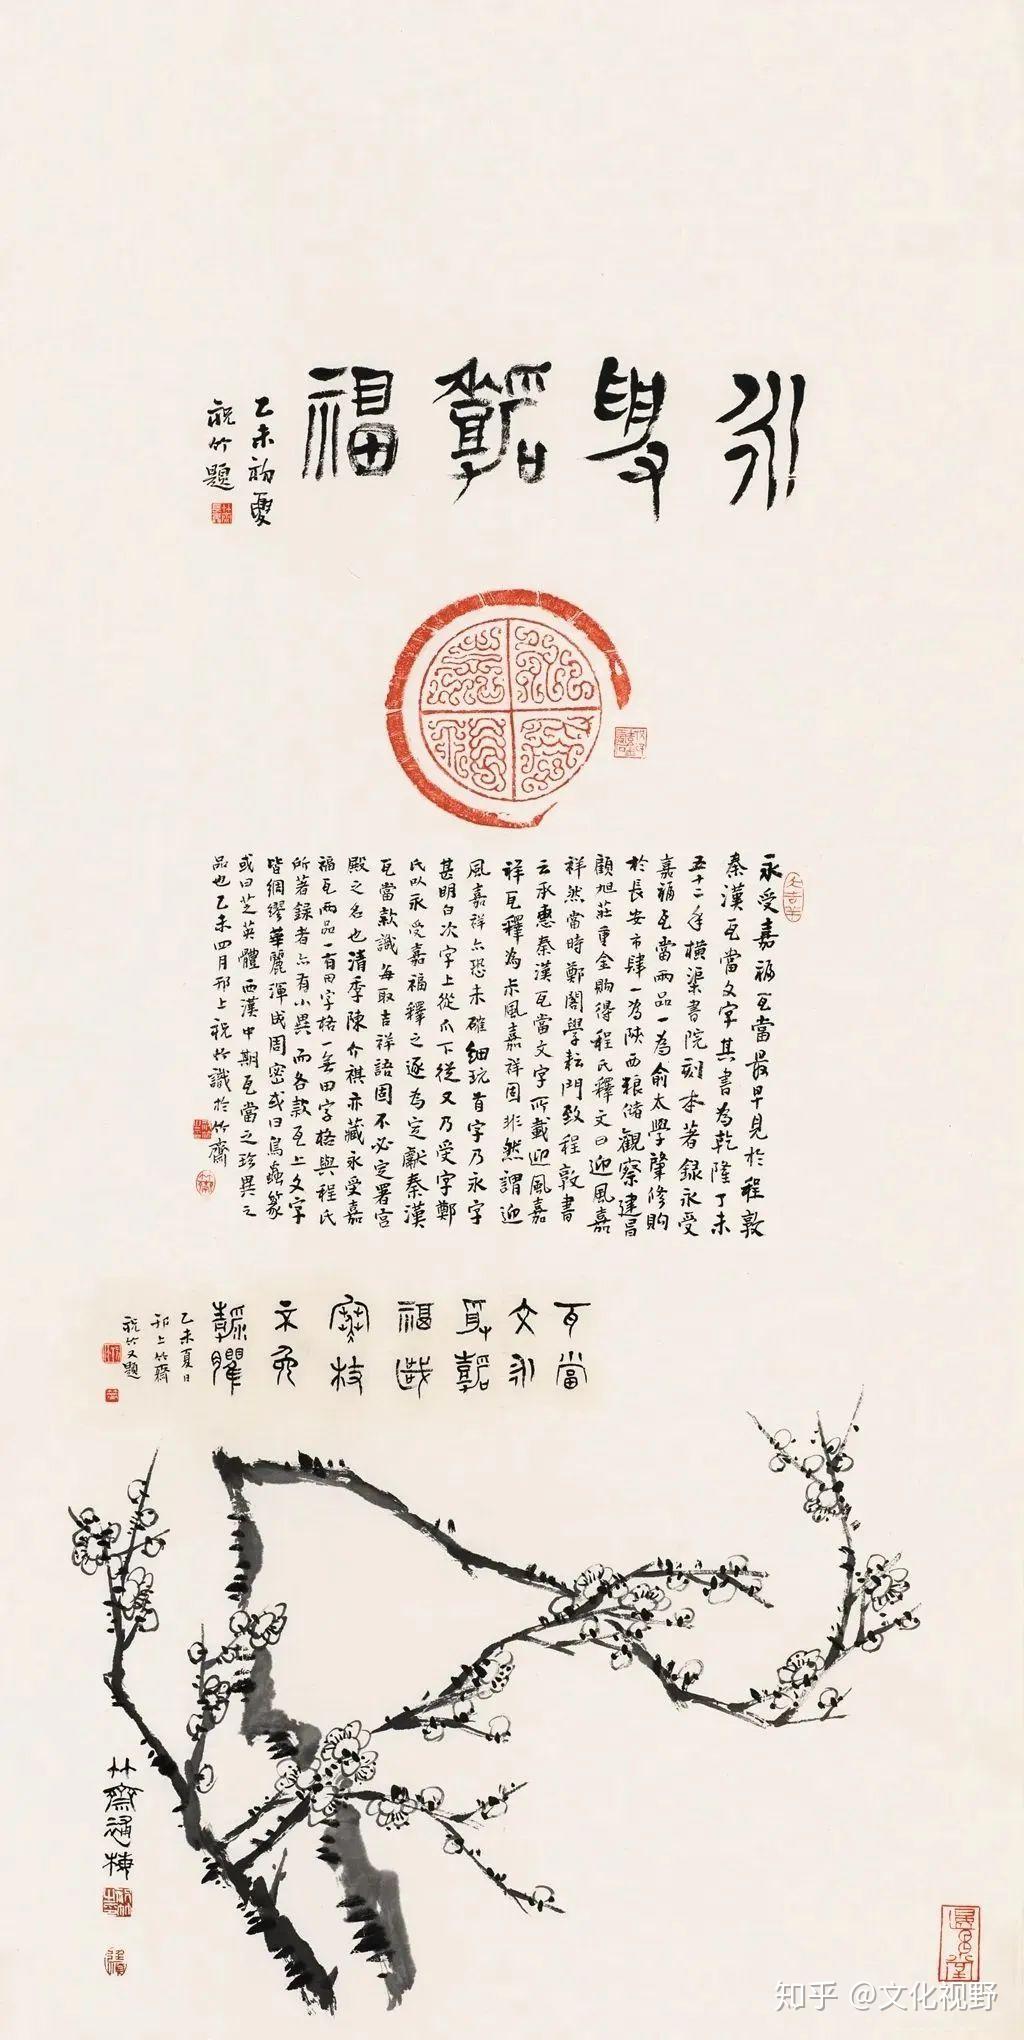 永受嘉福
乙未初夏
祝竹題
永受嘉福瓦當最早見於程敦
秦漢瓦當文字其書為乾隆丁未
五十二年橫渠書院刻本著錄永受
嘉福瓦當兩品一為俞太學肇修購
於長安市肆一為陝西糧儲觀察建昌
顧旭莊重金購得程氏釋文曰迎風嘉
祥然當時鄭閣學耘門致程敦書
云承惠秦漢瓦當文字所載迎風嘉
祥瓦釋為風嘉祥固非然謂迎
風嘉祥亦恐未確細玩首字乃永字
甚明白次字上從爪下從又乃受字鄭
氏以永受嘉福釋之遂為定獻秦漢
瓦當款識每取吉祥語固不必定署宮
殿之名也清季陳介祺亦藏永受嘉
福瓦兩品一有田字格一無田字格與程氏
所著錄者亦有小異而各款瓦上文字
皆綢繆華麗渾成周密或曰鳥蟲篆
或曰芝英體西漢中期瓦當之珍異之
品也乙未四月邗上祝竹識於竹齋
瓦當
文永
受嘉
福戲
枝
乙未夏日
邗上竹齋
祝竹又題
竹齋
知乎 @文化视野